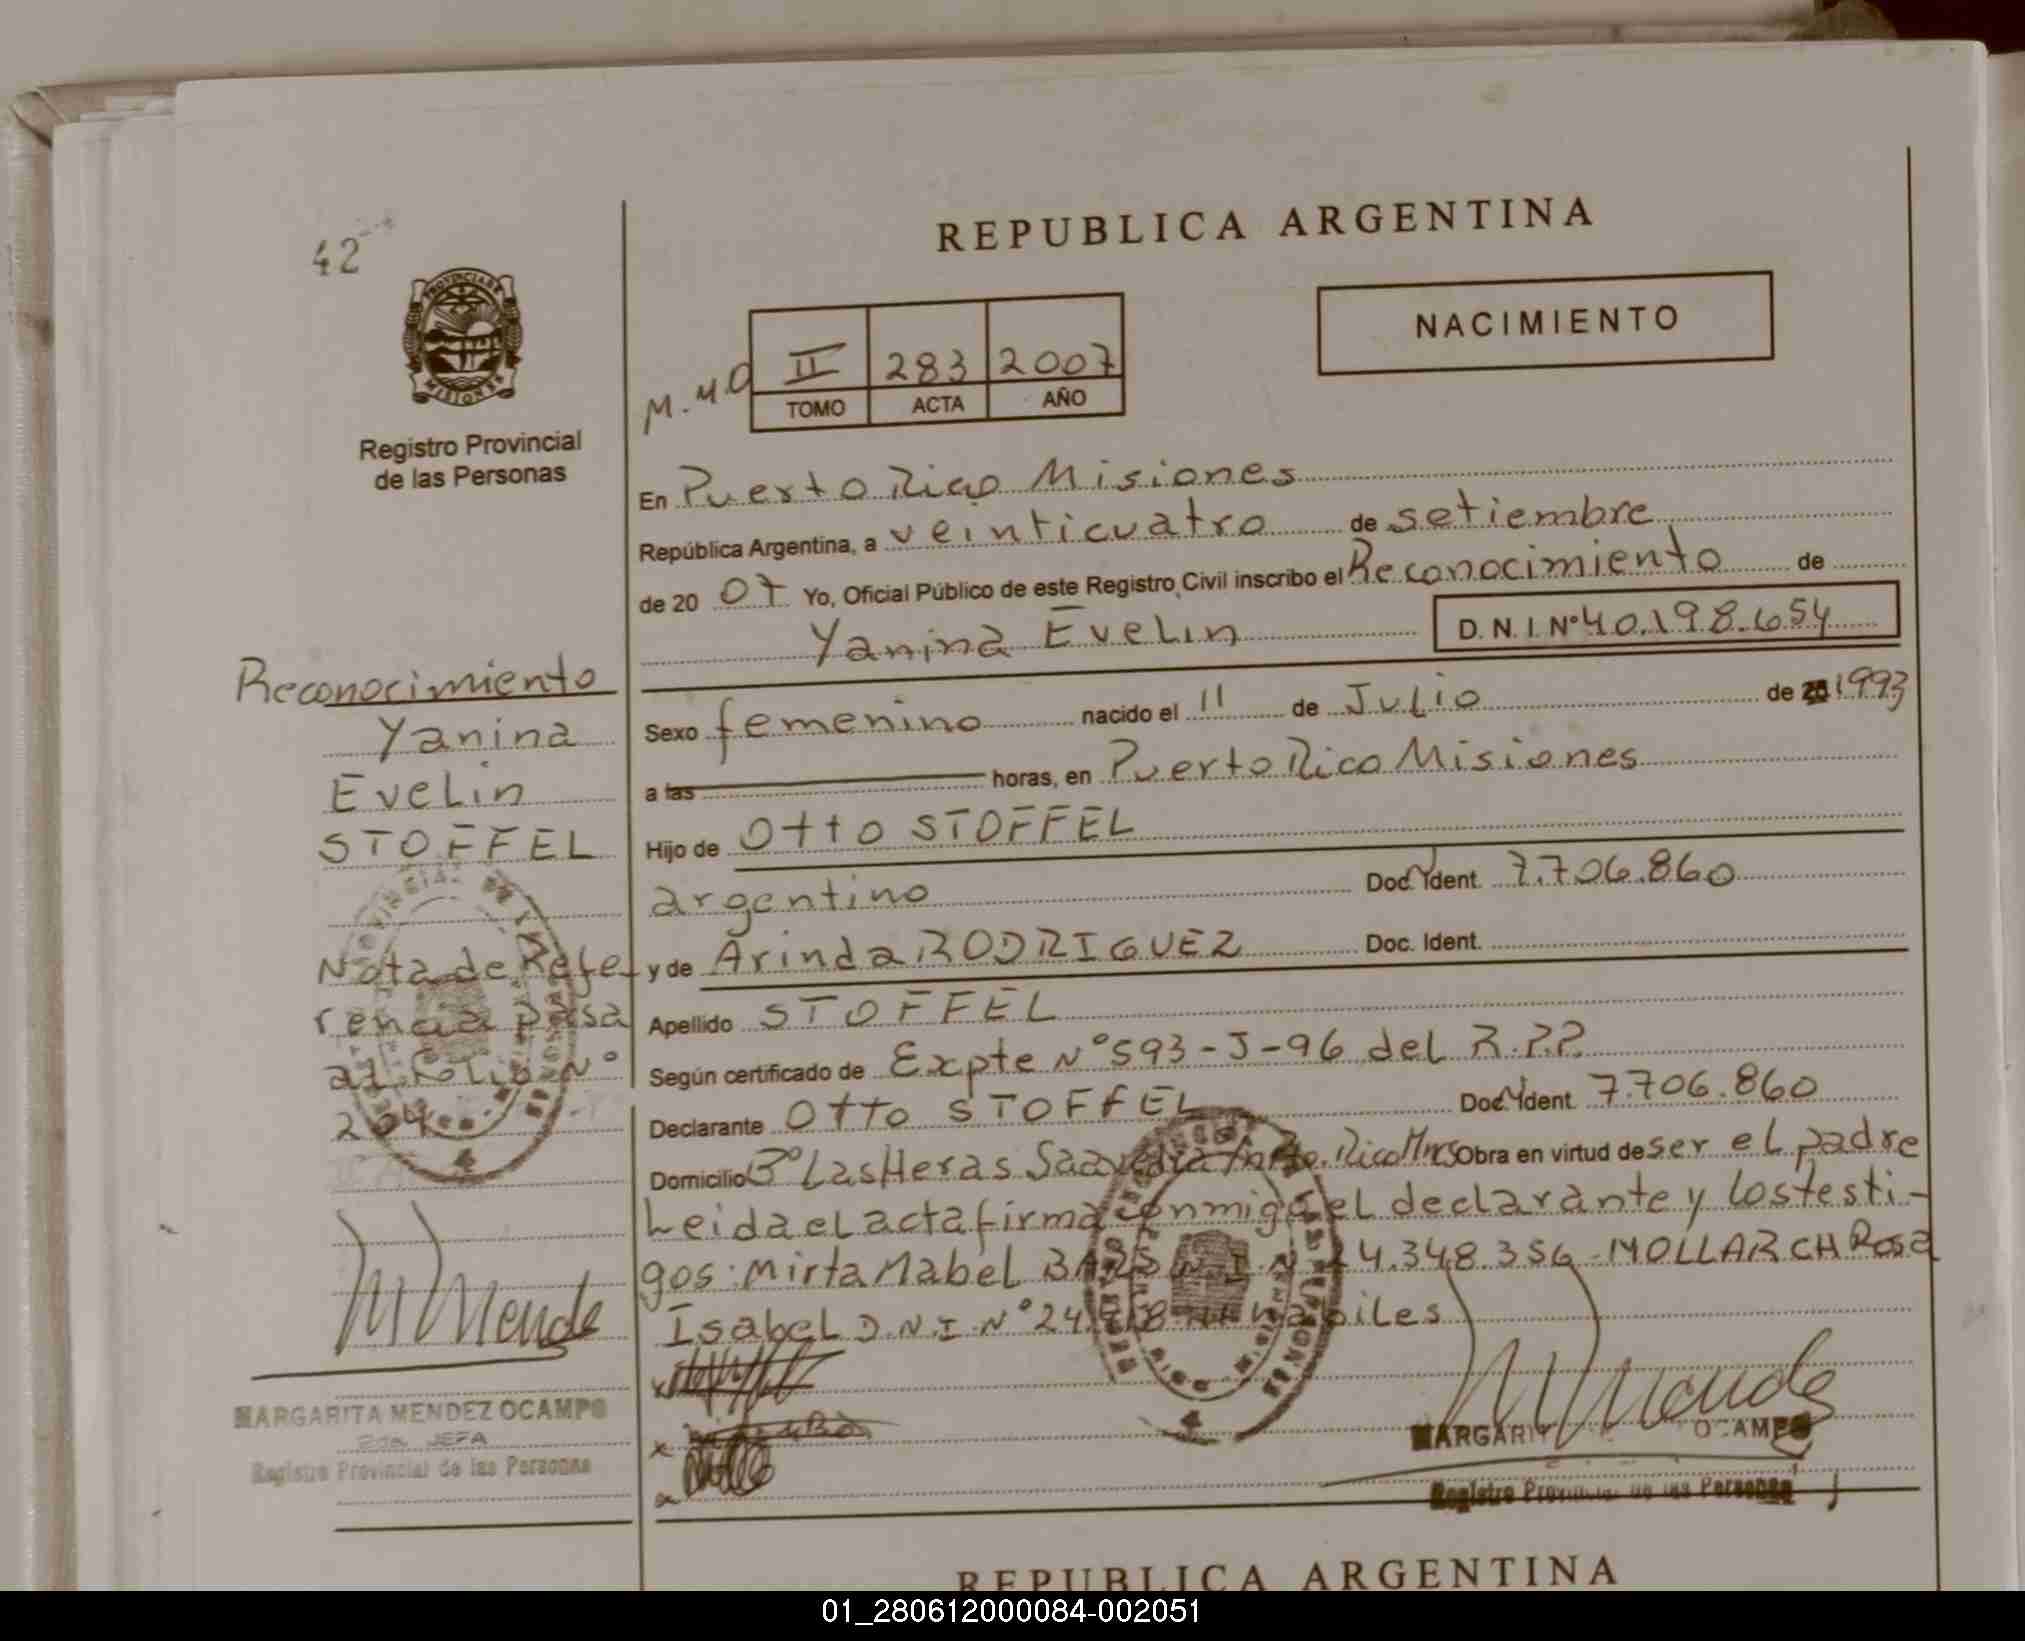 42
REPUBLICA ARGENTINA
PROVINCIA DE MISIONES
NACIMIENTO
M.M.O
II 283 2007
TOMO ACTA AÑO
Registro Provincial
de las Personas
En Puerto Rico Misiones
República Argentina, a veinticuatro de setiembre
de 20 07 Yo, Oficial Público de este Registro Civil inscribo el Reconocimiento de
Yanina Evelin D.N.I. Nº 40.198.654
Reconocimiento
Yanina
Evelin
STOFFEL
Sexo femenino nacido el 11 de Julio de 1993
a las horas, en Puerto Rico Misiones
Hijo de Otto STOFFEL
argentino Doc. Ident. 7.706.860
y de Arinda RODRIGUEZ Doc. Ident.
Apellido STOFFEL
Según certificado de Expte Nº 593-J-96 del R.P.P.
Nota de Refe-
rencia pasa
al folio Nº
204
Declarante Otto STOFFEL Doc. Ident. 7.706.860
Domicilio Bº Las Heras Saavedra Pto. Rico Mnes Obra en virtud de ser el padre
Leida el acta firma conmigo el declarante y los testi-
gos: Mirta Mabel 4.348.356 - MOLLARCH Rosa
Isabel D.N.I. Nº 24 habiles
M Mende
MARGARITA MENDEZ OCAMPO
2da JEFA
Registro Provincial de las Personas
M Mende
MARGARIT OCAMPO
Registro Provincial de las Personas
REPUBLICA ARGENTINA
01_280612000084-002051